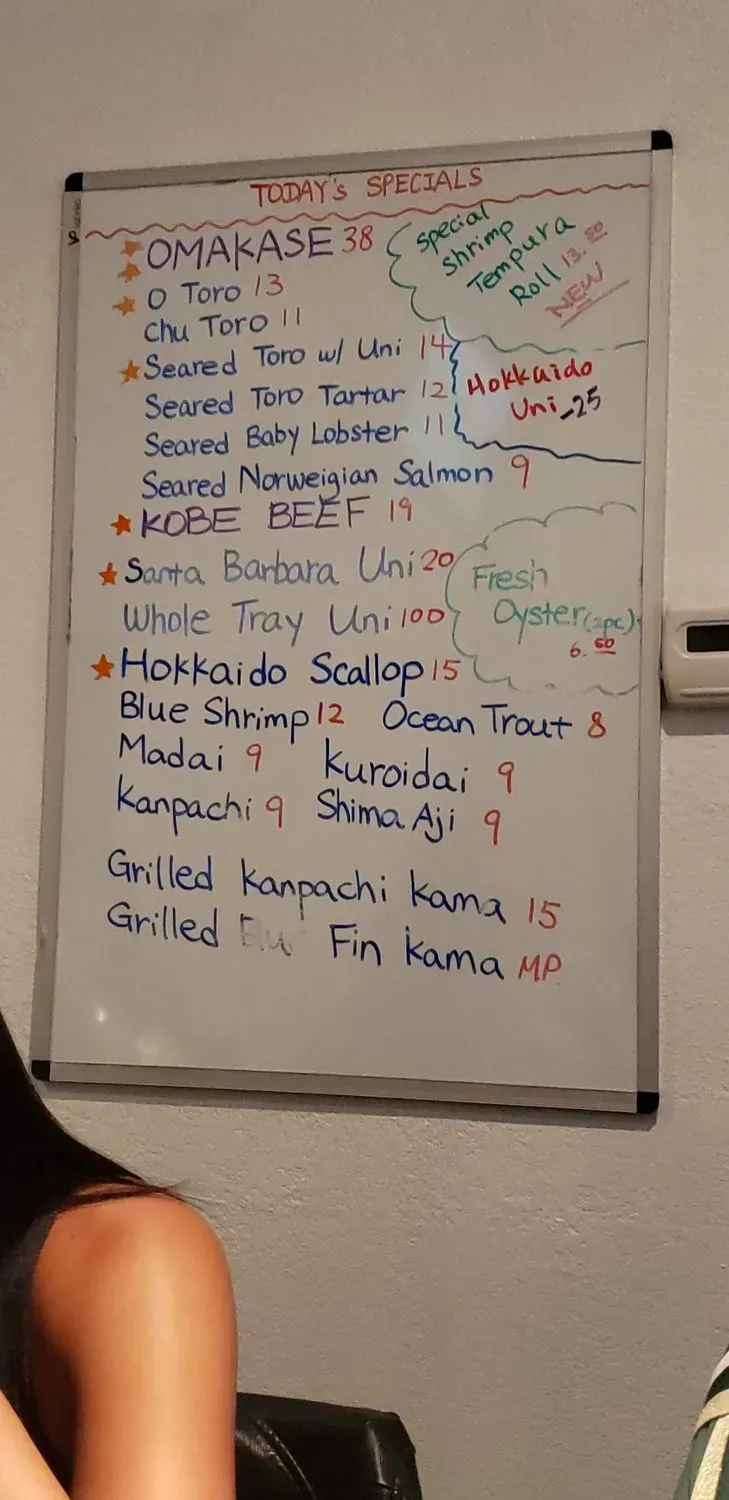 TODAY's SPECIALS
OMAKASE 38
O Toro 13
Chu Toro 11
Seared Toro w/ Uni 14
Seared Toro Tartar 12
Seared Baby Lobster 11
Seared Norweigian Salmon 9
KOBE BEEF 19
Santa Barbara Uni 20
Whole Tray Uni 100
Hokkaido Scallop 15
Blue Shrimp 12 Ocean Trout 8
Madai 9 Kuroidai 9
Kanpachi 9 Shima Aji 9
Grilled Kanpachi Kama 15
Grilled Blu Fin Kama MP
Special
Shrimp
Tempura
Roll 13.50
NEW
Hokkaido
Uni -25
Fresh
Oyster (2pc)
6.50